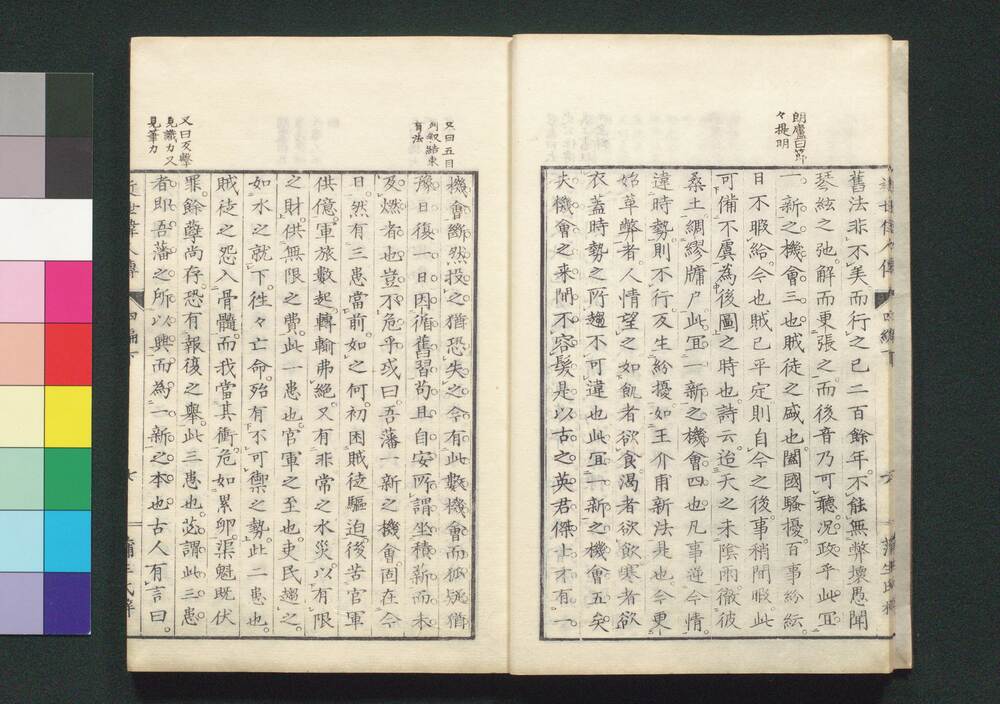 朗廬曰節
々提明
舊法非不美而行之已二百餘年不能無弊壞愚聞
琴絃之弛解而更張之而後音乃可聽况政乎此宜
一新之機會三也賊徒之盛也闔國騷擾百事紛紜
日不暇給今也賊已平定則自今之後事稍閒暇此
可備不虞為後圖之時也詩云迨天之未陰雨徹彼
桑土綢繆牖戶此宜一新之機會四也凡事逆今情
違時勢則不行反生紛擾如王介甫新法是也今更
始革弊者人情望之如飢者欲食渴者欲飲寒者欲
衣蓋時勢之所趨不可違也此宜一新之機會五矣
夫機會之来間不容髮是以古之英君傑士才有一
又曰五目
列叙結束
有法
機會斷然投之猶恐失之今有此數機會而狐疑猶
豫日復一日因循舊習苟且自安所謂坐積薪而未
及燃者也豈不危乎或曰吾藩一新之機會固在今
日然有三患當前如之何初困賊徒驅迫後苦官軍
供億軍旅數起轉輸弗絶又有非常之水災以有限
之財供無限之費此一患也官軍之至也吏民趨之
如水之就下徃々亡命殆有不可禦之勢此二患也
賊徒之怨入骨髓而我當其衝危如累卵渠魁既伏
罪餘孽尚存恐有報復之舉此三患也苾謂此三患
者即吾藩之所以興而為一新之本也古人有言曰
又曰又擧
見識力又
見筆力
近世偉人傳
四編下
蒲生氏